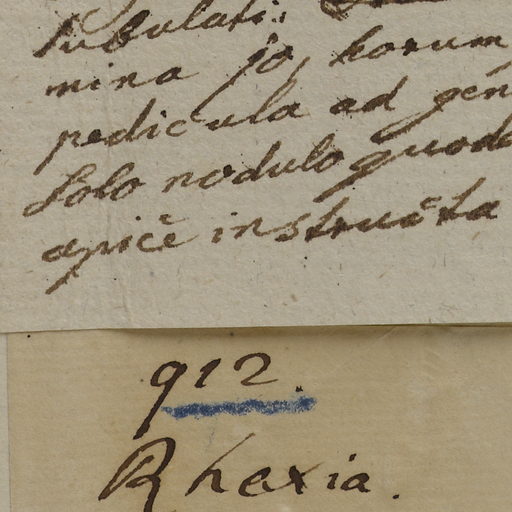 subulati.
mina 10, horum
pedicula ad gen
solo nodulo quod
apicē instructa
912.
Rhexia.